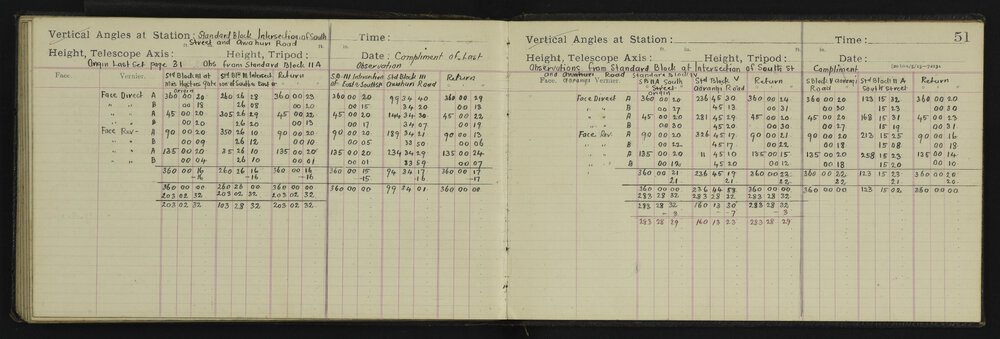 Vertical Angles at Station: Standard Block Intersection of South Street and Awahuri Road Time:
Height, Telescope Axis: ft. Height, Tripod: ft. Date: Compliment of Last Observation
Origin Last Set page 31 Obs from Standard Block II A
Face. Vernier. Std Block III at Origin Return Std Block III Return
Face Direct A 360 00 20 260 26 28 360 00 23 360 00 20 99 34 40 360 00 29
" " B 00 18 26 08 00 20 00 15 34 20 00 13
" " A 45 00 20 305 26 29 45 00 22 45 00 20 144 34 30 45 00 22
" " B 00 20 26 20 00 13 00 17 34 07 00 19
Face Rev- A 90 00 20 350 26 10 90 00 20 90 00 20 189 34 21 90 00 13
" " B 00 09 26 12 00 10 00 05 33 50 00 06
" " A 135 00 20 35 26 10 135 00 20 135 00 20 234 34 29 135 00 24
" " B 00 04 26 10 00 01 00 01 33 59 00 07
360 00 16 260 26 16 360 00 16 360 00 15 94 34 17 360 00 17
-16 -16 -16 -15 -16 -17
360 00 00 260 26 00 360 00 00 360 00 00 99 34 01 360 00 00
203 02 32 203 02 32 203 02 32
203 02 32 103 28 32 203 02 32
51
Vertical Angles at Station: ft. Time:
Height, Telescope Axis: ft. Height, Tripod: ft. Date:
Observations from Standard Block at Intersection of South St and Awahuri Road Standard Block IV Compliment
Face. Vernier. S B III South Street Origin Std Block V Aorangi Road Return S Block V Aorangi Road Std Block II A South Street Return
Face Direct A 360 00 20 236 45 30 360 00 24 360 00 20 123 15 32 360 00 20
" " B 00 27 45 13 00 31 00 30 15 23 00 30
" " A 45 00 20 281 45 29 45 00 20 45 00 20 168 15 31 45 00 23
" " B 00 27 45 20 00 30 00 27 15 19 00 31
Face Rev. A 90 00 20 326 45 17 90 00 21 90 00 20 213 15 25 90 00 16
" " B 00 22 45 17 00 22 00 18 15 08 00 18
" " A 135 00 20 11 45 10 135 00 15 135 00 20 258 15 23 135 00 14
" " B 00 12 45 20 00 12 00 18 15 20 00 10
360 00 21 236 45 19 360 00 22 360 00 22 123 15 23 360 00 20
21 21 22 22 21 20
360 00 00 236 44 58 360 00 00 360 00 00 123 15 02 360 00 00
283 28 32 283 28 32 283 28 32
- 3 - 7 - 3
283 28 29 160 13 23 283 28 29